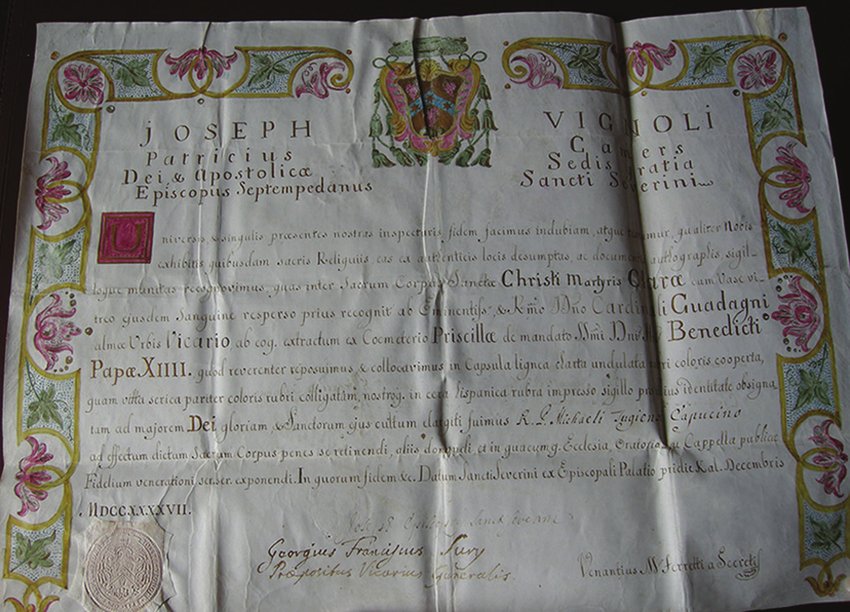 JOSEPH VIGNOLI
Patricius Camers
Dei & Apostolicæ Sedis Gratia
Episcopus Septempedanus Sancti Severini
Universis & singulis præsentes nostras inspecturis, fidem facimus indubiam, atque qualiter Nobis
exhibitis quibusdam Sacris Reliquiis eas ex authenticis locis desumptas ac documentis autographis, sigil-
loque munitas recognovimus, quas inter Sacrum Corpus Sanctæ Christi Martyris Claræ cum Vase vi-
treo ejusdem Sanguine resperso prius recognit ab Eminentiss. & Rmo Dno Cardinali Guadagni
almæ Urbis Vicario ab eoq. extractum ex Coemeterio Priscillæ de mandato SSmi Dni Benedicti
Papæ XIIII. quod reverenter reposuimus, & collocavimus in Capsula lignea charta undulata rubri coloris cooperta,
quam vitta serica pariter coloris rubri colligatam, nostroq. in cera hispanica rubra impresso sigillo pro ejus identitate obsigna-
tam ad majorem Dei gloriam & Sanctorum ejus cultum elargiti fuimus R. P. Michaeli Capucino
ad effectum dictum Sacrum Corpus penes se retinendi, aliis donandi, et in quacumq. Ecclesia, Oratorio, Cappella publicæ
Fidelium venerationi exponendi. In quorum fidem &c. Datum Sancti Severini ex Episcopali Palatio pridie Kal. Decembris
MDCCXXXXVII.
Georgius Franciscus
Præpositus Vicarius Generalis.
Venantius Ferretti a Secretis